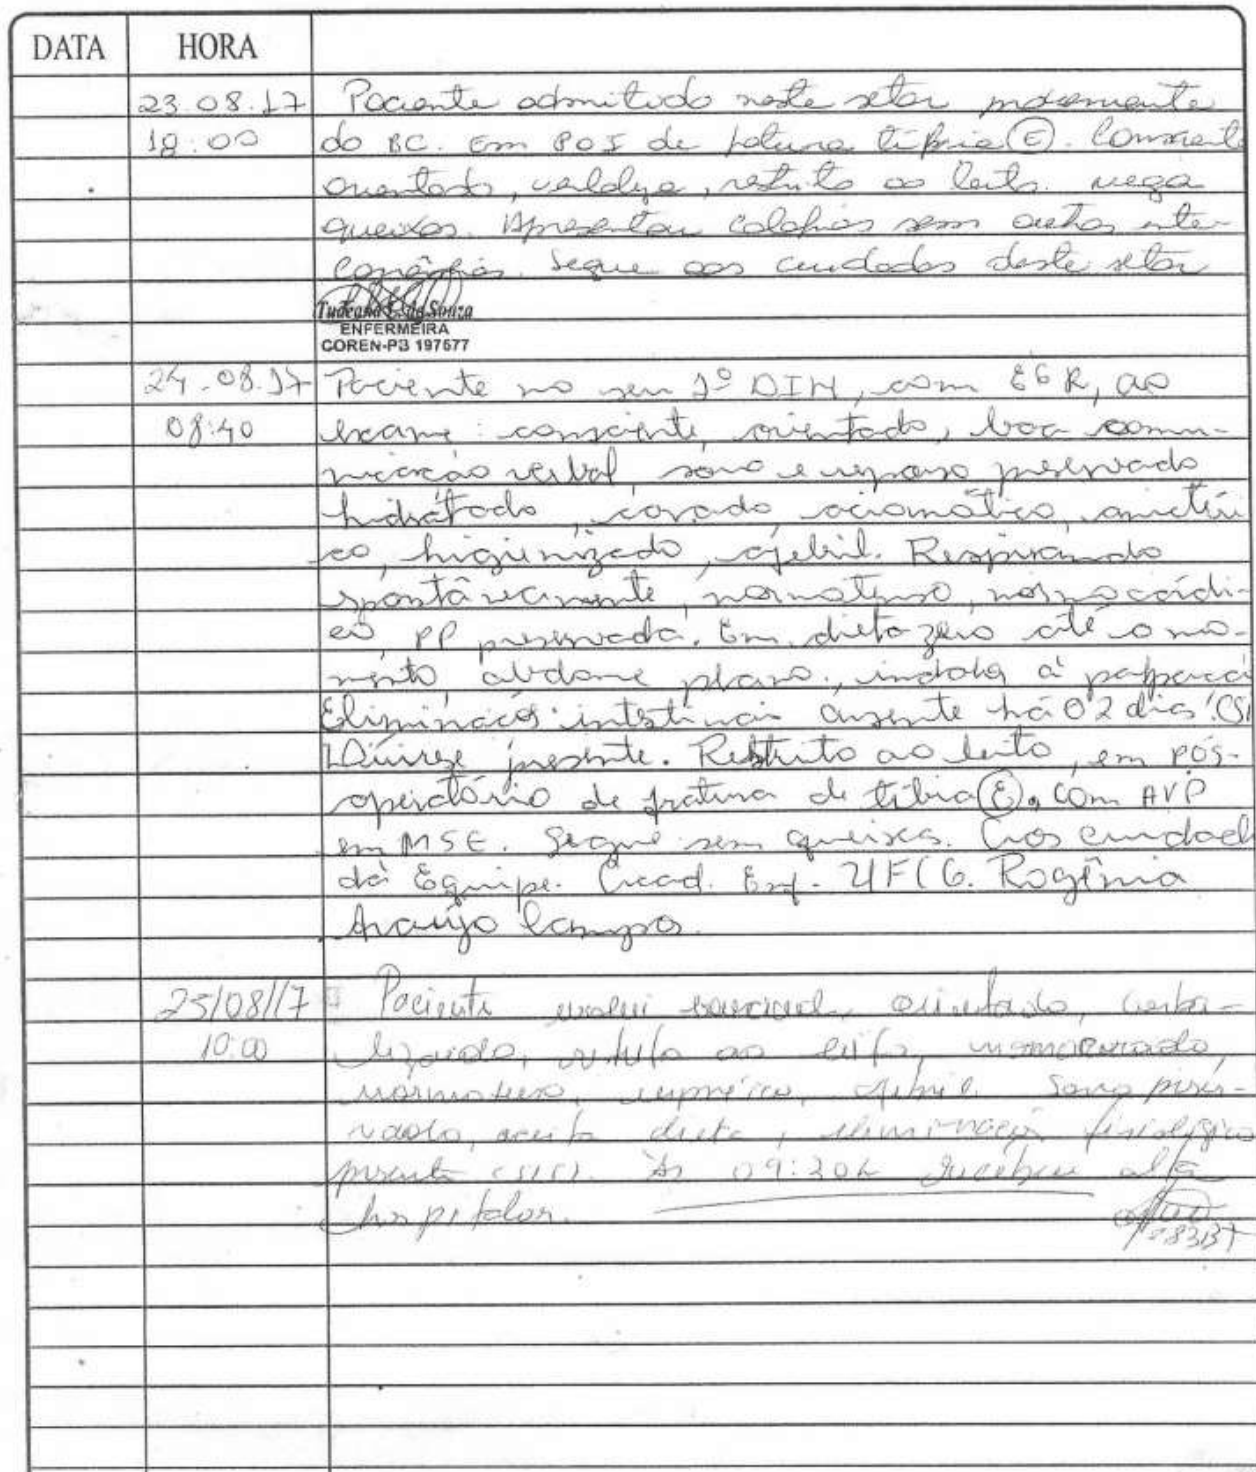 DATA HORA
23.08.17 Paciente admitido neste setor
18:00 do BC. Em POI de fratura tíbia (E). Consciente
orientado, restrito ao leito. nega
queixas. Apresentou sem
Segue aos cuidados deste setor
ENFERMEIRA
COREN-PB 197677
24.08.17 Paciente no seu 1º DIH, com EGR, ao
08:40 exame: consciente, orientado, boa comu-
nicação verbal, sono e repouso preservado
hidratado, corado, acianótico, anictéri
co, higienizado, afebril. Respirando
espontâneamente, normotenso, normocárdi-
co, PP preservada. Em dieta zero até o mo-
mento abdome plano, indolor à palpação
Eliminações intestinais ausente há 02 dias (SI
Diurese presente. Restrito ao leito, em pós-
operatório de fratura de tíbia (E), com AVP
em MSE. Segue sem queixas. Aos cuidad
da Equipe. Acad. Enf. UFCG. Rogênia
Araújo Campos.
25/08/17 Paciente orientado, verba-
10:00 lizando, restrito ao leito, normocorado,
normotenso, eupneico, afebril. Sono preser-
vado, aceita dieta, eliminações fisiológica
presente (SIC). Às 09:30h recebeu alta
hospitalar.